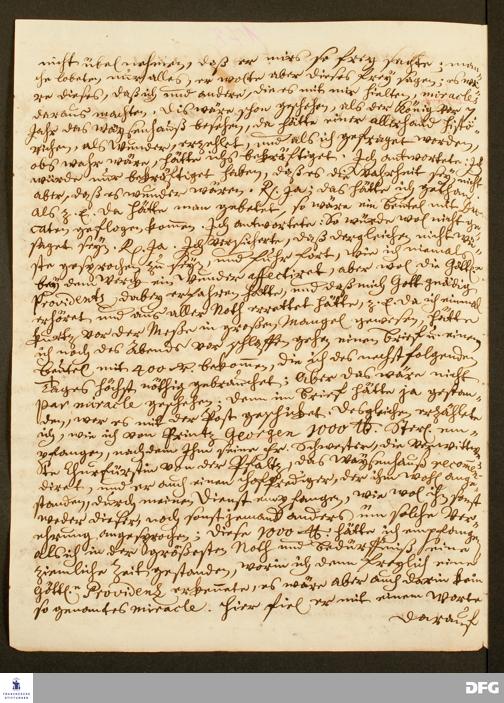 nicht übel nehmen, daß er mirs so frey sagte; man¬
che lobeten mir alles, er wolte aber dieses frey sagen; es wä¬
re dieses, daß ich und andere, die es mit mir hielten, miracles
daraus machten. dis wäre schon geschehen, als der König vor 1
Jahr das Waysenhauß besehen, da hätte einer allerhand histö¬
richen, als Wunder, erzehlet, und als ich gefraget worden,
obs wahr wäre, hätte ichs bekräftiget. Ich antwortete: Ich
würde nur bekräftiget haben, daß es die Wahrheit sey, nicht
aber, daß es wunder wären. R. Ja; das hätte ich gethan
als z. E. da hätte man gebetet, so wäre ein beutel mit Du¬
caten geflogen kommen. Ich antwortete: So würde wol nicht ge¬
saget seyn. R. Ja. Ich versicherte, daß dergleichen nicht mü¬
ste gesprochen zu seyn, und fuhr fort, wie ich niemals
bey dem Werck ein Wunder affectiret, aber wol die Göttl.
Providentz dabey erfahren hätte, und daß mich Gott gnädig
erhöret und aus aller Noth errettet hätte, z. E. da ich einmal
kurtz vor der Messe in großen Mangel gewesen, hätte
ich noch des Abends vor schlaffen gehen einen brief u. einen
beutel mit 400 R. bekommen, die ich des nechstfolgenden
Tages höchst nöthig gebrauchet; Aber das wäre nicht
par miracle geschehen; denn im brief hätte ja gestan¬
den, wer es mit der Post geschicket. Desgleichen erzählete
ich, wie ich von Printz Georgen 1000 lb. Sterl. em¬
pfangen, nachdem Ihm seine Fr. Schwester, die verwittw¬
te Churfürstin von der Pfaltz, das Waysenhauß recomen¬
diret, und er auch einen Hofprediger, der ihm wohl ange¬
standen, durch meinen Dienst empfangen, wie wol ich sonst
weder diesen, noch sonst jemand anders um solche Ver¬
ehrung angesprochen; diese 1000 lb. hätte ich empfangen
als ich in der größesten Noth und Bedürffniß eine
ziemliche Zeit gestanden, worin ich denn freylich eine
Göttl. Providentz erkennete, es wäre aber auch darin kein
so genantes miracle. Hier fiel er mit einem Worte
darauf
FRANCKESCHE
STIFTUNGEN
DFG